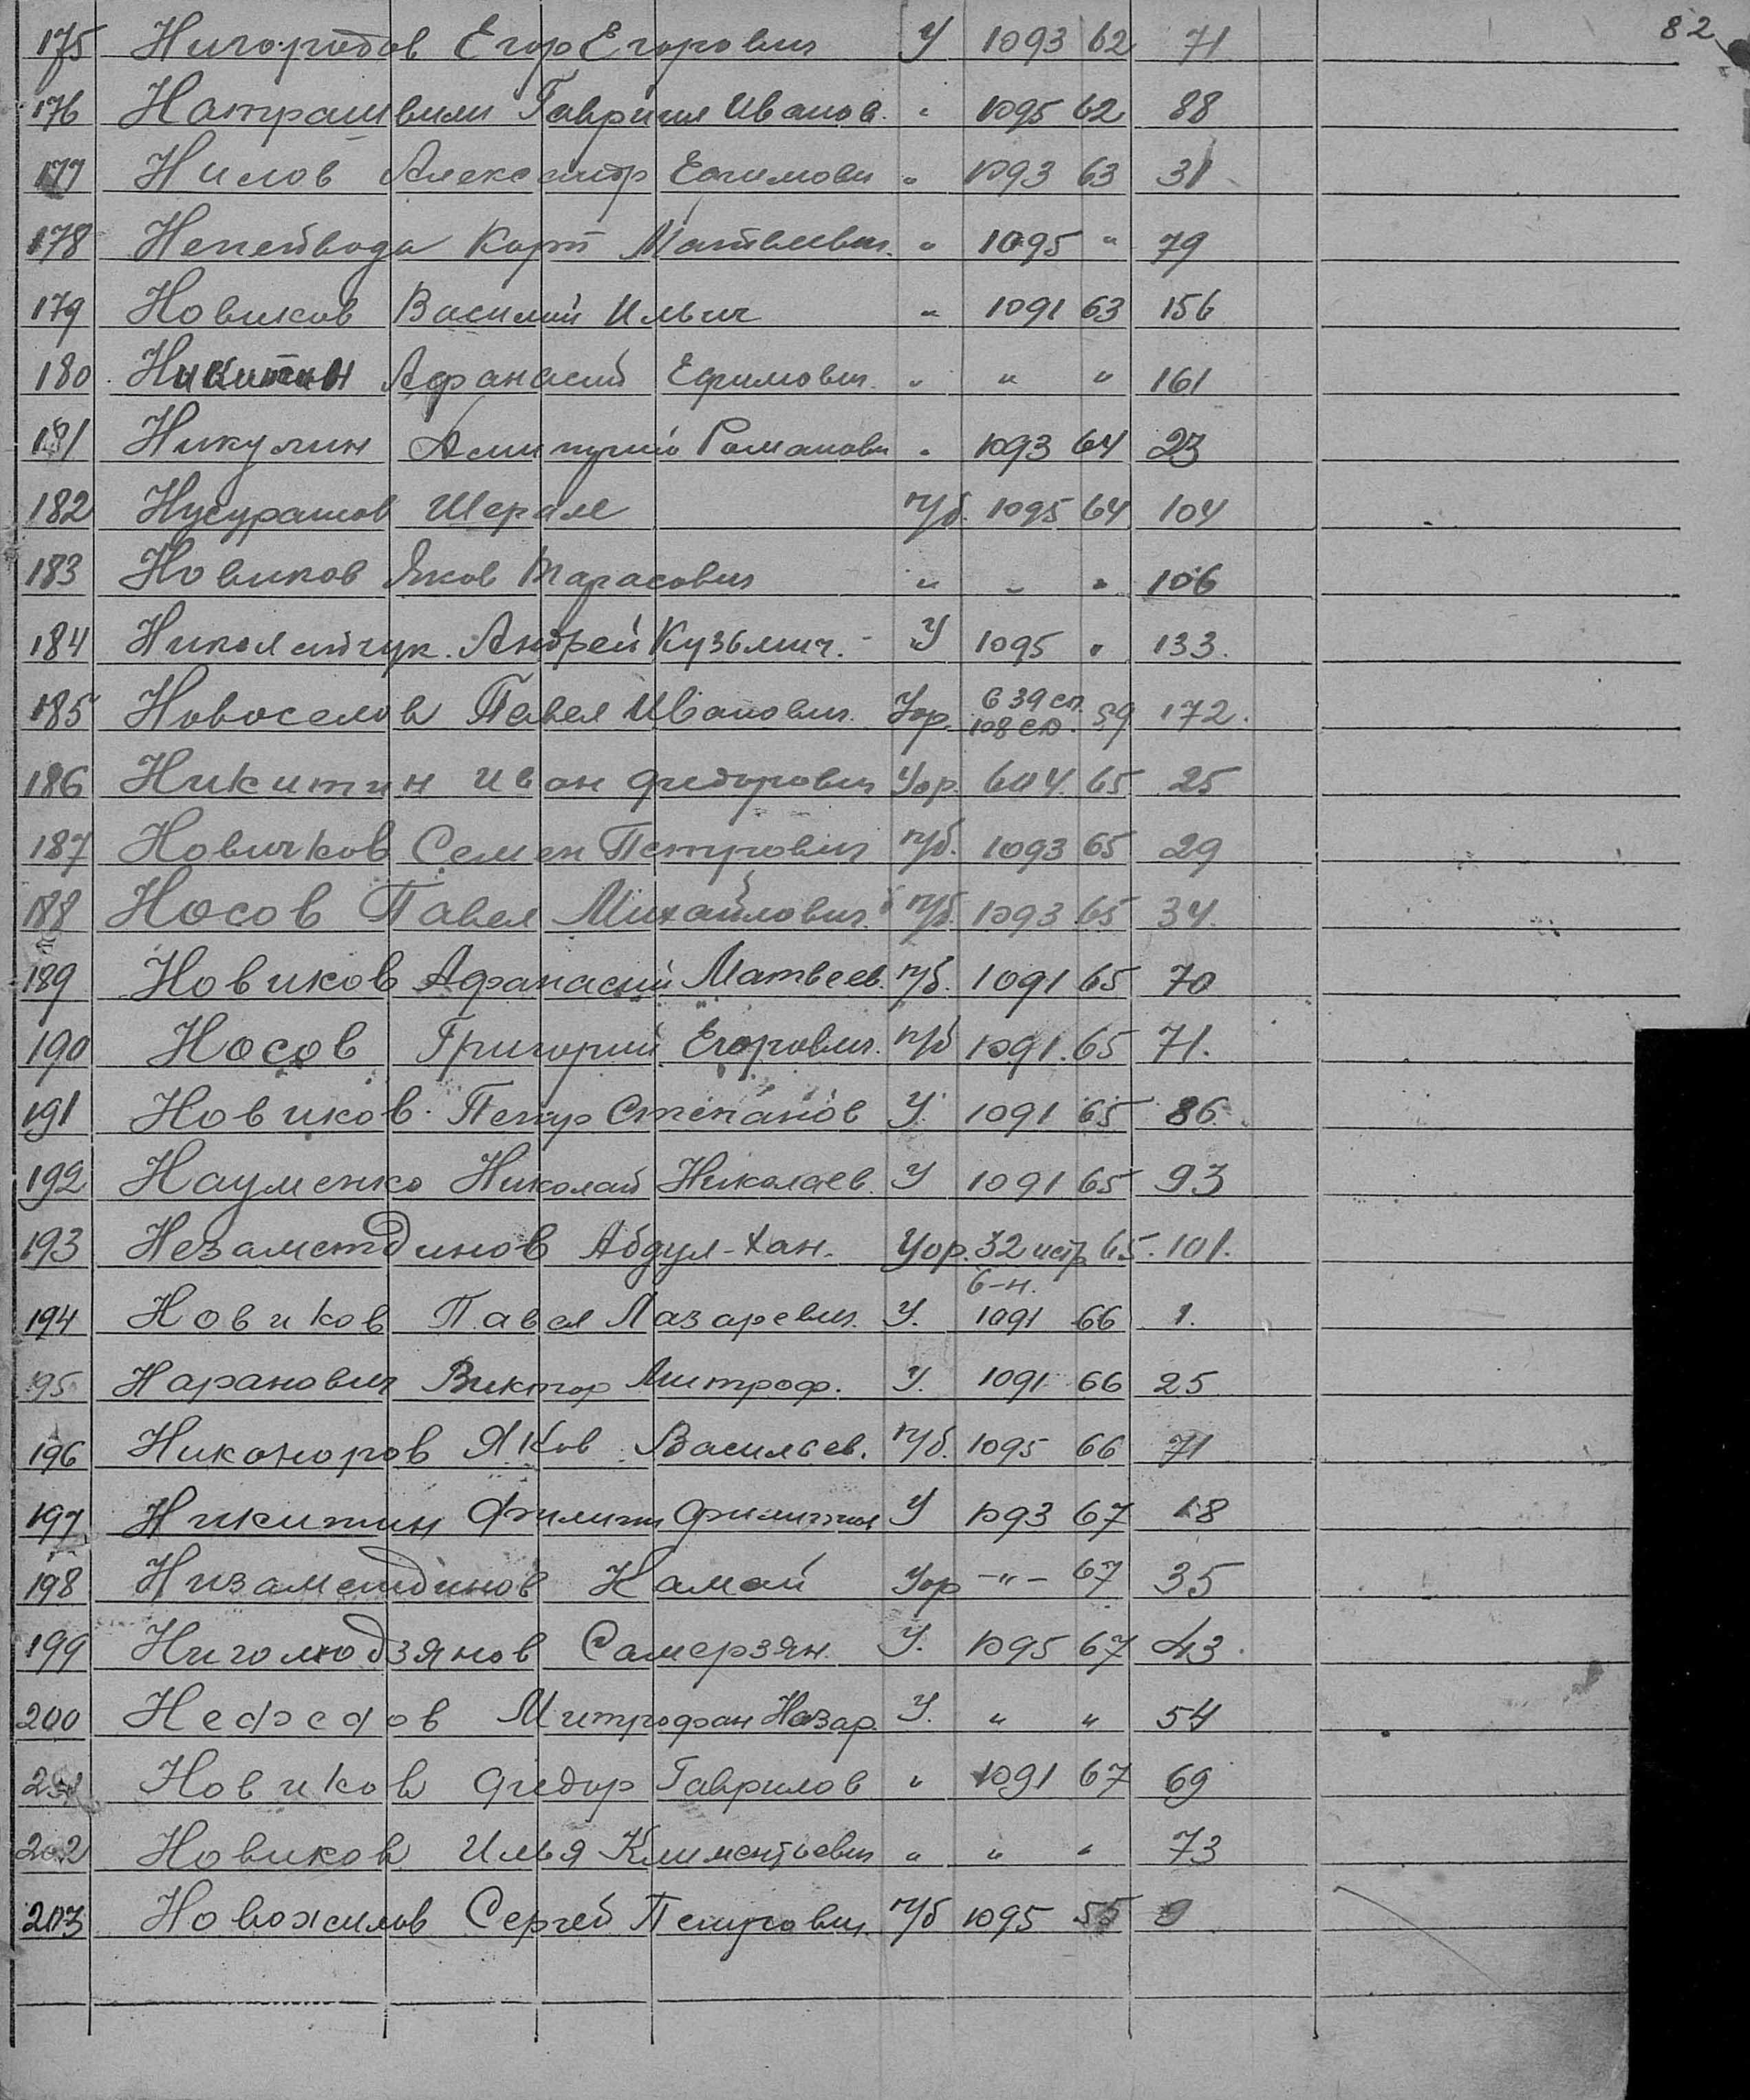 82
175 Нигородов Егор Егорович У 1093 62 71
176 Натрашвили Гавриил Иванов. " 1095 62 88
177 Нилов Александр Ефимович " 1093 63 31
178 Непейвода Карп Матвеевич. " 1095 " 79
179 Новиков Василий Ильич " 1091 63 156
180. Никитин Афанасий Ефимович. " " " 161
181 Никулин Романович " 1093 64 23
182 Нусурашов Шерале п/б. 1095 64 104
183 Новиков Яков Тарасович " " " 106
184 Николайчук. Андрей Кузьмич. - У 1095 " 133.
185 Новоселов Павел Иванович. Уор. 639 сп. 59 172.
108 сд.
186 Никитин Иван Федорович Уор. 604 65 25
187 Новичков Семен Петрович п/б. 1093 65 29
188 Носов Павел Михайлович. п/б. 1093 65 34.
189 Новиков Афанасий Матвеев. п/б. 1091 65 70
190 Носов Григорий Егорович. п/б 1091. 65 71.
191 Новиков. Петр Степанов У. 1091 65 86.
192 Науменко Николай Николаев. У 1091 65 93
193 Незаметдинов Абдул-Хан. Уор. 32 истр 65. 101.
б-н.
194 Новиков Павел Лазаревич. У. 1091 66 1.
195 Наранович Виктор Митроф. У. 1091 66 25
196 Никоноров Яков Васильев. п/б. 1095 66 71
197 Никитин Филипп Филиппов У 1093 67 18
198 Низаметдинов Камай Уор -"- 67 35
199 Ниголюдзянов Самерзян. У. 1095 67 43.
200 Нефедов Митрофан Назар. У. " " 54
201 Новиков Федор Гаврилов " 1091 67 69
202 Новиков Илья Климентьевич " " " 73
203 Новожилов Сергей Петрович. п/б 1095 55